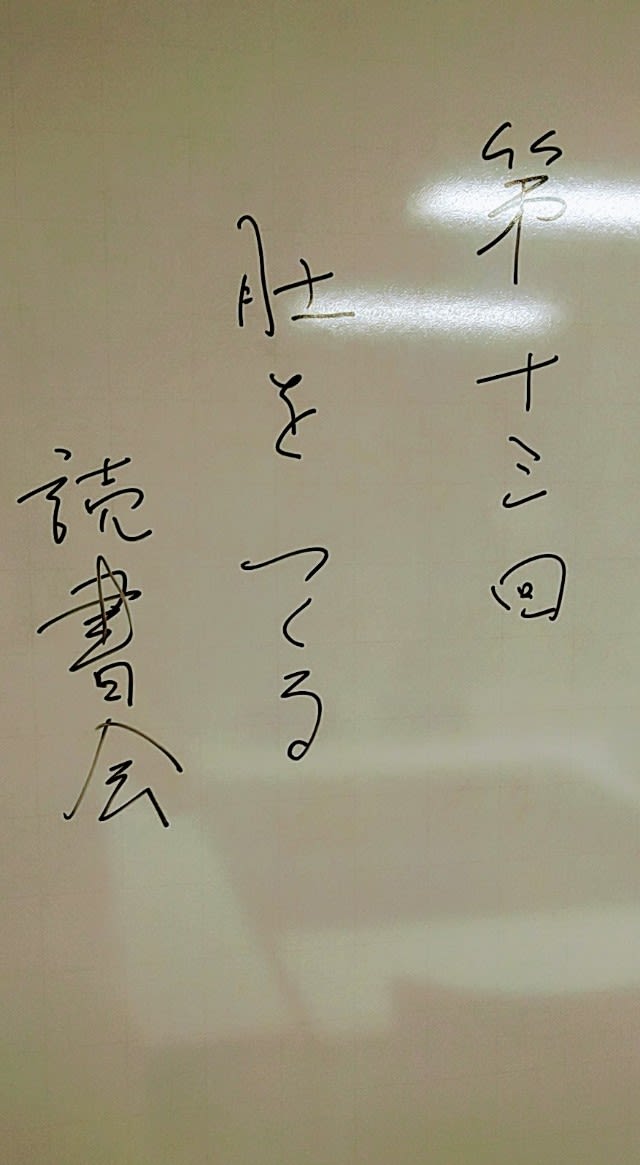 第十三回
肚をつくる
読書会